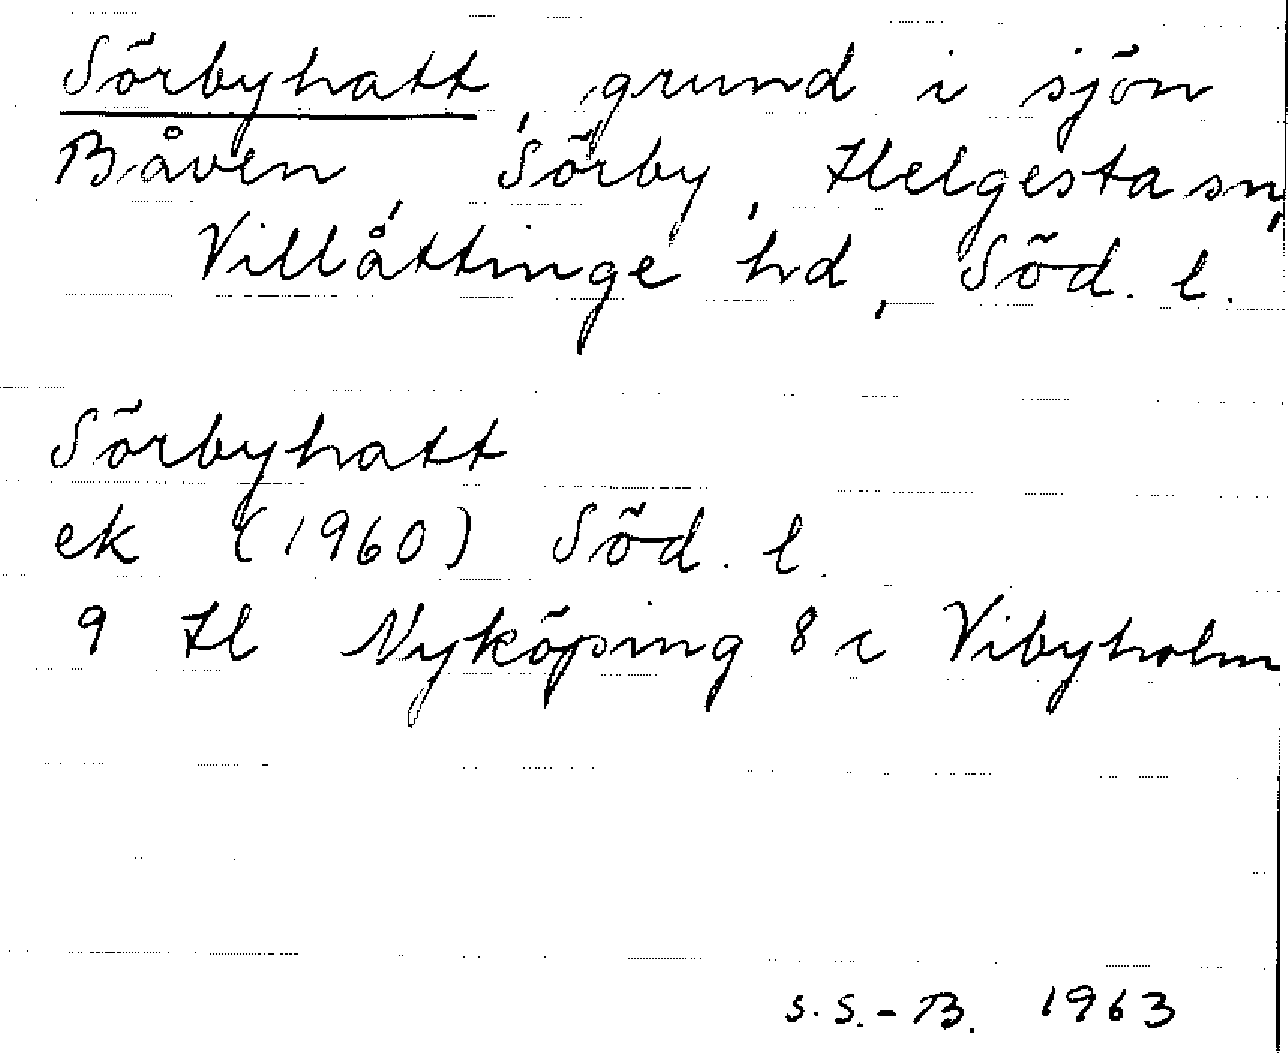 Sörbyhatt, grund i sjön
Båven, Sörby, Helgesta sn,
Villåttinge hd, Söd. l.
Sörbyhatt
ek (1960) Söd. l.
9 H Nyköping 8 c Vibyholm
S.S.-B. 1963